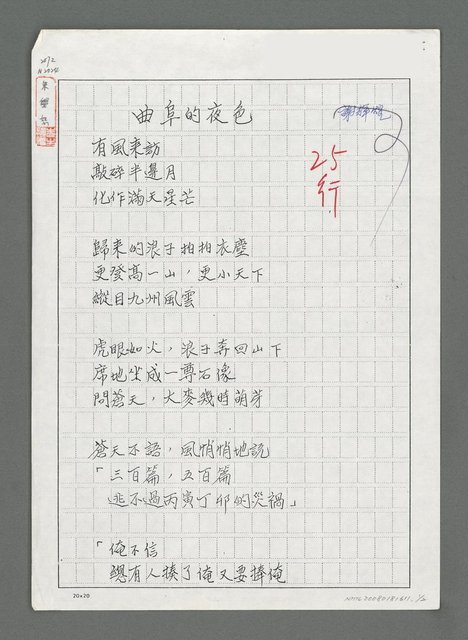 曲阜的夜色
25
行
有風來訪
敲碎半邊月
化作滿天星芒
歸來的浪子拍拍衣塵
更登高一山，更小天下
縱目九州風雲
虎眼如火，浪子奔回山下
席地坐成一尊石像
問蒼天，大麥幾時萌芽
蒼天不語，風悄悄地說
「三百篇，五百篇
逃不過丙寅丁卯的災禍」
「俺不信
總有人揍了俺又要捧俺
20×20